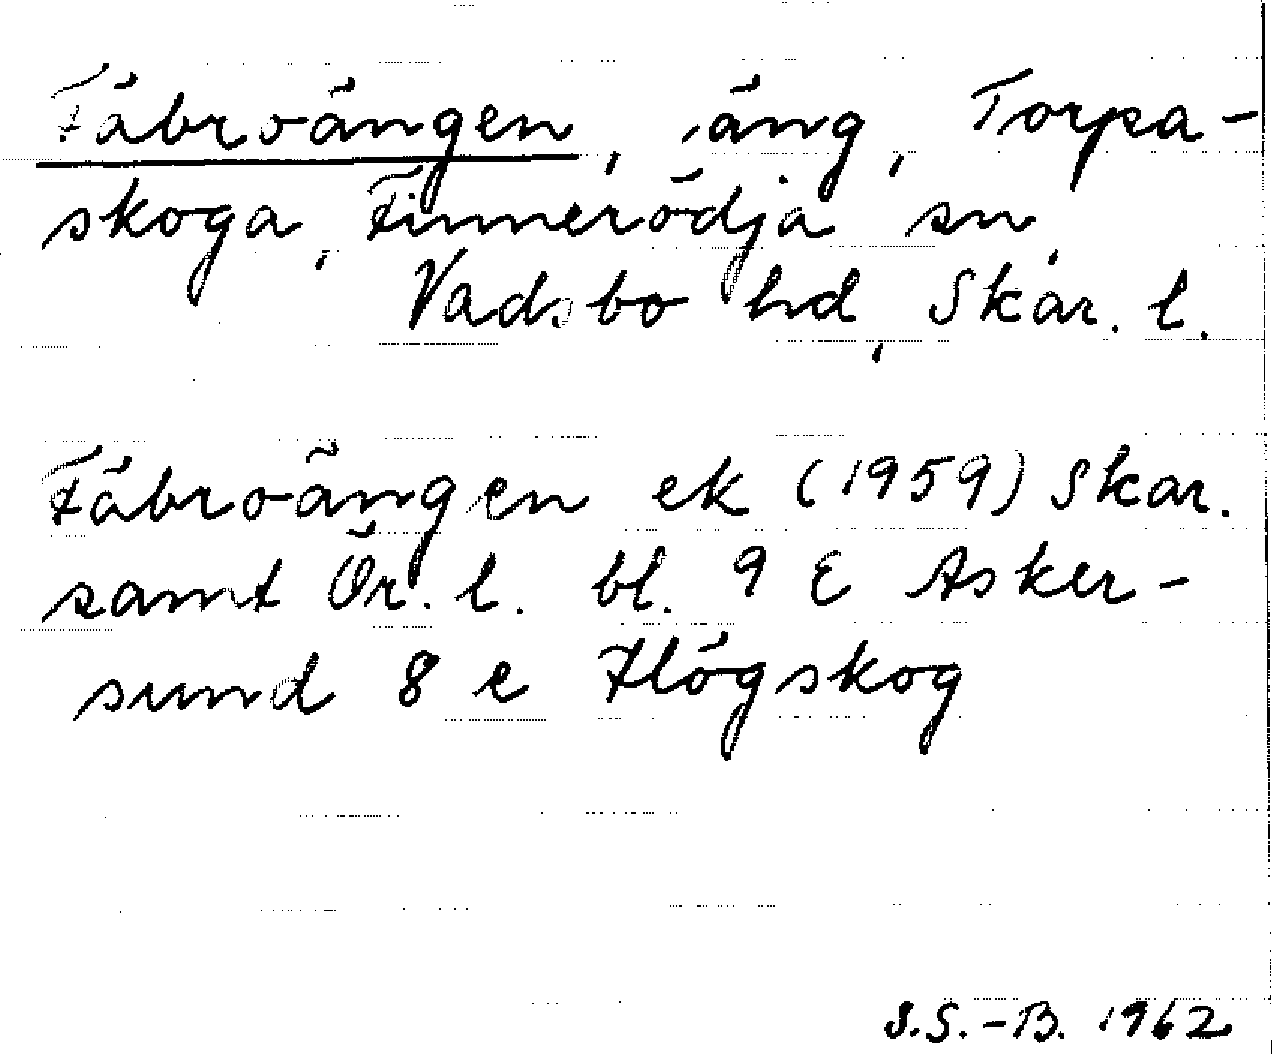 Fäbroängen, äng, Torpa-
skoga, Finnerödja sn,
Vadsbo hd, Skar. l.
Fäbroängen ek (1959) Skar.
samt Ör. l. bl. 9 E Asker-
sund 8 e Högskog
S.S.-B. 1962